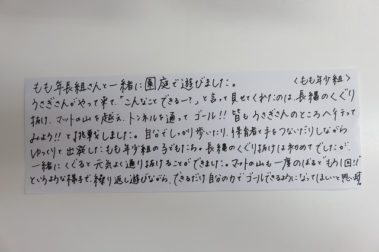 もも年長組さんと一緒に園庭で遊びました。 〈もも年少組〉
うさぎさんがやって来て、「こんなことできるー?」と言って見せてくれたのは、長縄のくぐり
抜け、マットの山を超え、トンネルを通ってゴール!! 皆もうさぎさんのところへ行って
みよう!!と挑戦しました。自分でしっかり歩いたり、保育者と手をつないだりしながら
ゆっくりと出発したもも年少組の子どもたち。長縄のくぐり抜けは初めてでしたが、
一緒にくぐると元気よく通り抜けることができました。マットの山も一度のぼると“もう1回!!”
というような様子で、繰り返し遊びながら、できるだけ自分の力でゴールできるようになってほしいと思